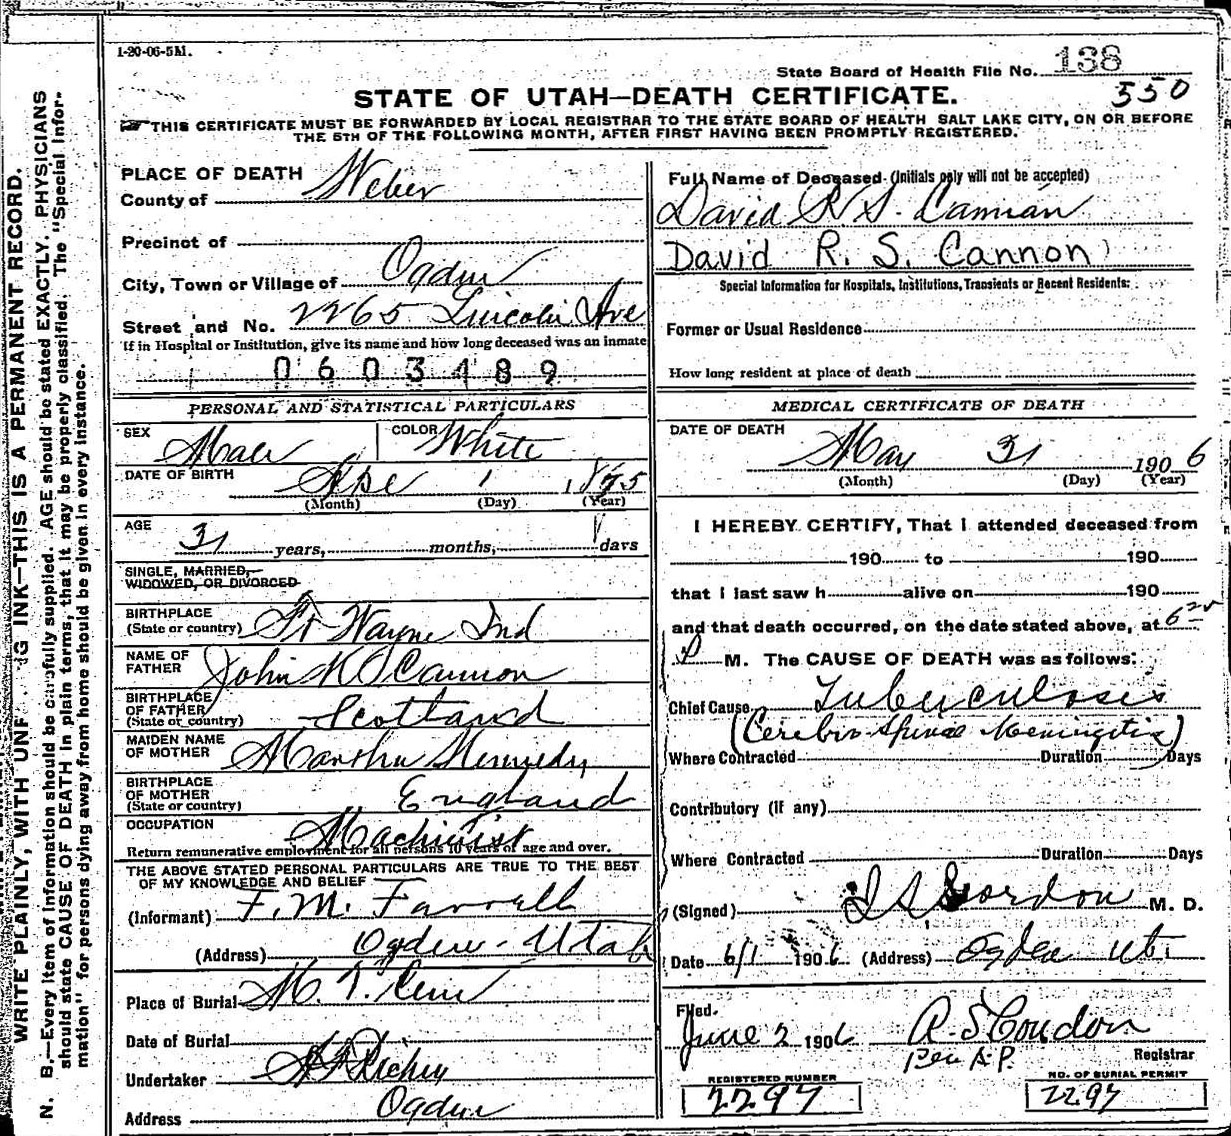 1-20-06-5M.
State Board of Health File No. 138
550
STATE OF UTAH—DEATH CERTIFICATE.
THIS CERTIFICATE MUST BE FORWARDED BY LOCAL REGISTRAR TO THE STATE BOARD OF HEALTH SALT LAKE CITY, ON OR BEFORE
THE 5TH OF THE FOLLOWING MONTH, AFTER FIRST HAVING BEEN PROMPTLY REGISTERED.
WRITE PLAINLY, WITH UNF NG INK—THIS IS A PERMANENT RECORD.
N. B.—Every item of information should be carefully supplied. AGE should be stated EXACTLY. PHYSICIANS
should state CAUSE OF DEATH in plain terms, that it may be properly classified. The "Special Infor-
mation" for persons dying away from home should be given in every instance.
PLACE OF DEATH
County of Weber
Precinct of
City, Town or Village of Ogden
Street and No. 2265 Lincoln Ave
If in Hospital or Institution, give its name and how long deceased was an inmate
0603189
PERSONAL AND STATISTICAL PARTICULARS
SEX Male COLOR White
DATE OF BIRTH 1 1875
(Month) (Day) (Year)
AGE
31 years, months, 1 days
SINGLE, MARRIED,
WIDOWED, OR DIVORCED
BIRTHPLACE
(State or country) Ft Wayne Ind
NAME OF
FATHER John K Cannon
BIRTHPLACE
OF FATHER
(State or country) Scotland
MAIDEN NAME
OF MOTHER Martha Kennedy
BIRTHPLACE
OF MOTHER
(State or country) England
OCCUPATION Machinist
Return remunerative employment for all persons 10 years of age and over.
THE ABOVE STATED PERSONAL PARTICULARS ARE TRUE TO THE BEST
OF MY KNOWLEDGE AND BELIEF
(Informant) F. M. Farrell
(Address) Ogden - Utah
Place of Burial
Date of Burial
Undertaker Richey
Address Ogden
Full Name of Deceased (Initials only will not be accepted)
David R. S. Cannon
David R. S. Cannon
Special Information for Hospitals, Institutions, Transients or Recent Residents:
Former or Usual Residence
How long resident at place of death
MEDICAL CERTIFICATE OF DEATH
DATE OF DEATH
May 31 1906
(Month) (Day) (Year)
I HEREBY CERTIFY, That I attended deceased from
190 to 190
that I last saw h alive on 190
and that death occurred, on the date stated above, at 6
P M. The CAUSE OF DEATH was as follows:
Chief Cause Tuberculosis
(Cerebro-Spinal Meningitis)
Where Contracted Duration Days
Contributory (if any)
Where Contracted Duration Days
(Signed) Gordon M. D.
Date 6/1 1906 (Address) Ogden Ut.
Filed.
June 2 1906 R. S. Condon
Per A.P. Registrar
REGISTERED NUMBER
2297
NO. OF BURIAL PERMIT
2297